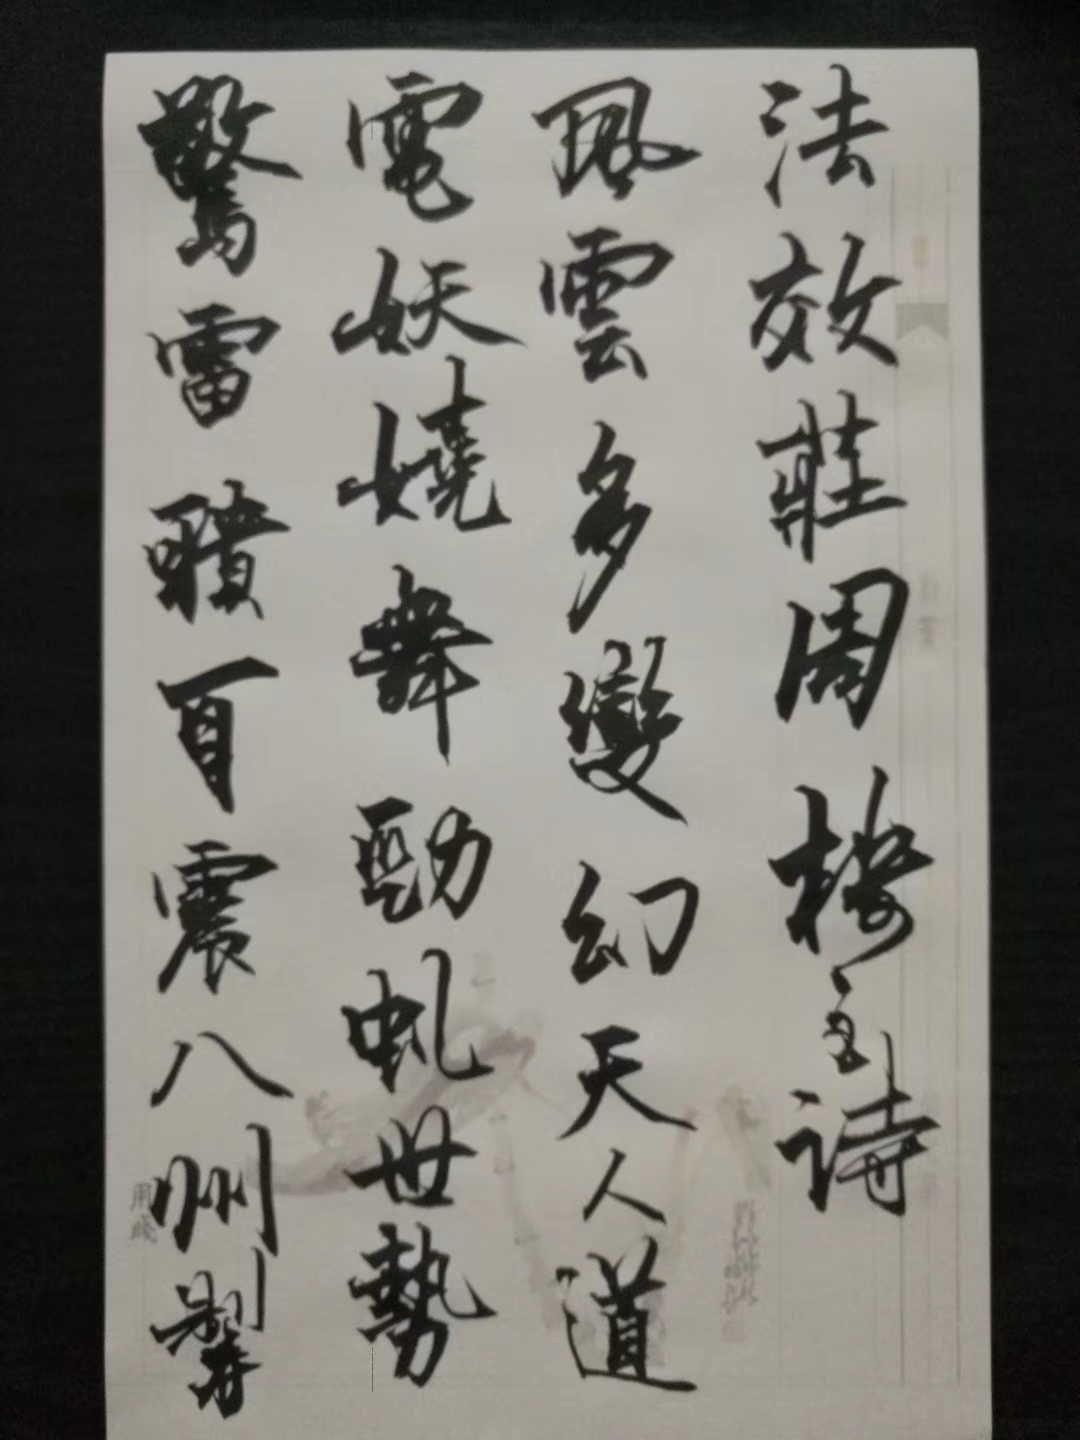 法效莊周樓主詩
風雲多變幻天人道
電妖嬈舞勁虬世勢
驚雷聵百震八州